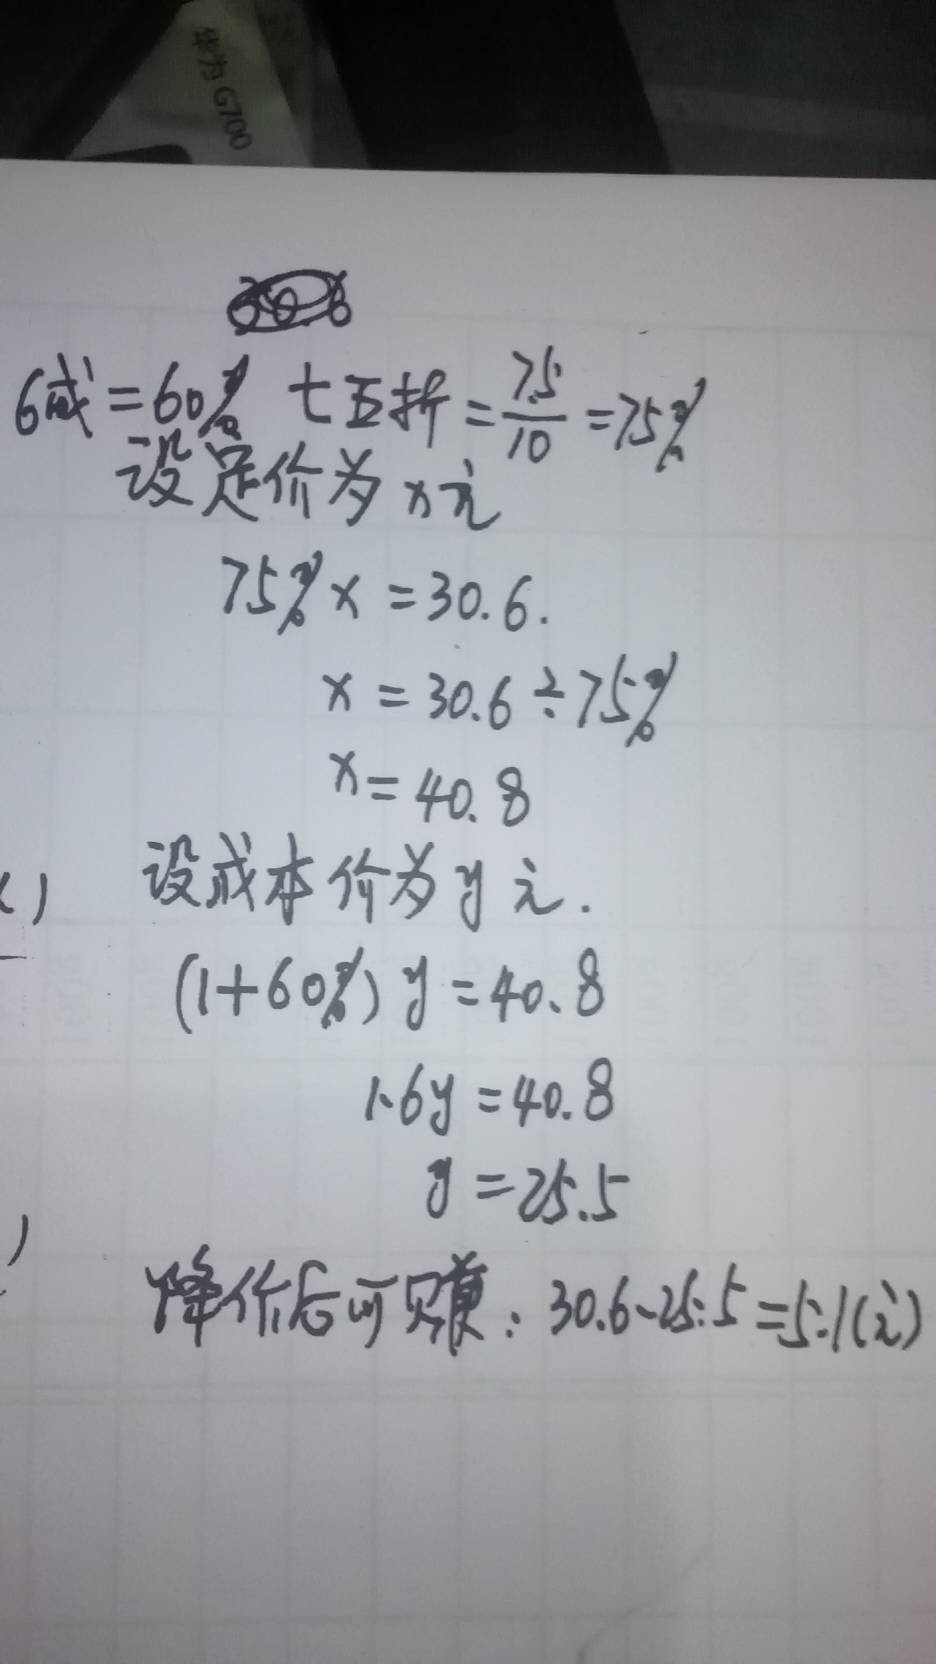 华为 G700
6成=60% 七五折=7.5/10=75%
设定价为x元
75%x=30.6.
x=30.6÷75%
x=40.8
设成本价为y元.
(1+60%)y=40.8
1.6y=40.8
y=25.5
降价后可赚:30.6-25.5=5.1(元)